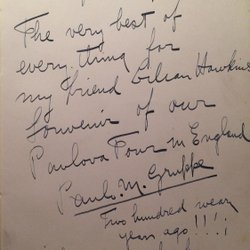 The very best of
every thing for
my friend Gilean Hawkins
Souvenir of our
Pavlova Tour in England
Paulo. M. Gruppe
Two hundred wear
years ago !!!;